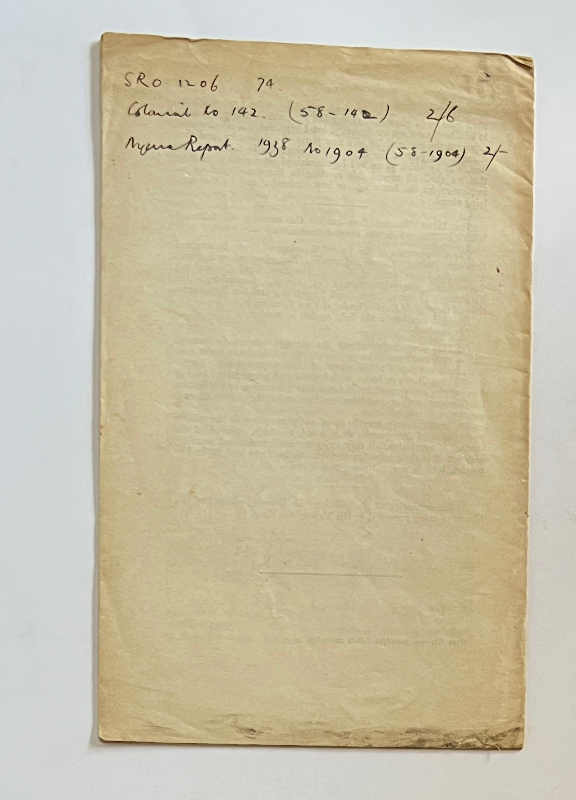 SRO 1206 7d.
Colonial No 142. (58-142) 2/6
Nigeria Report. 1938 No 1904 (58-1904) 2/-